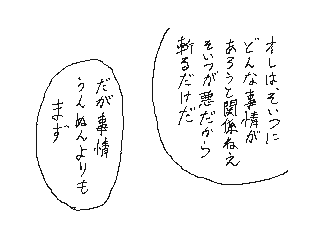 オレは、そいつに
どんな事情が
あろうと関係ねえ
そいつが悪だから
斬るだけだ
だが事情
うんぬんよりも
まず